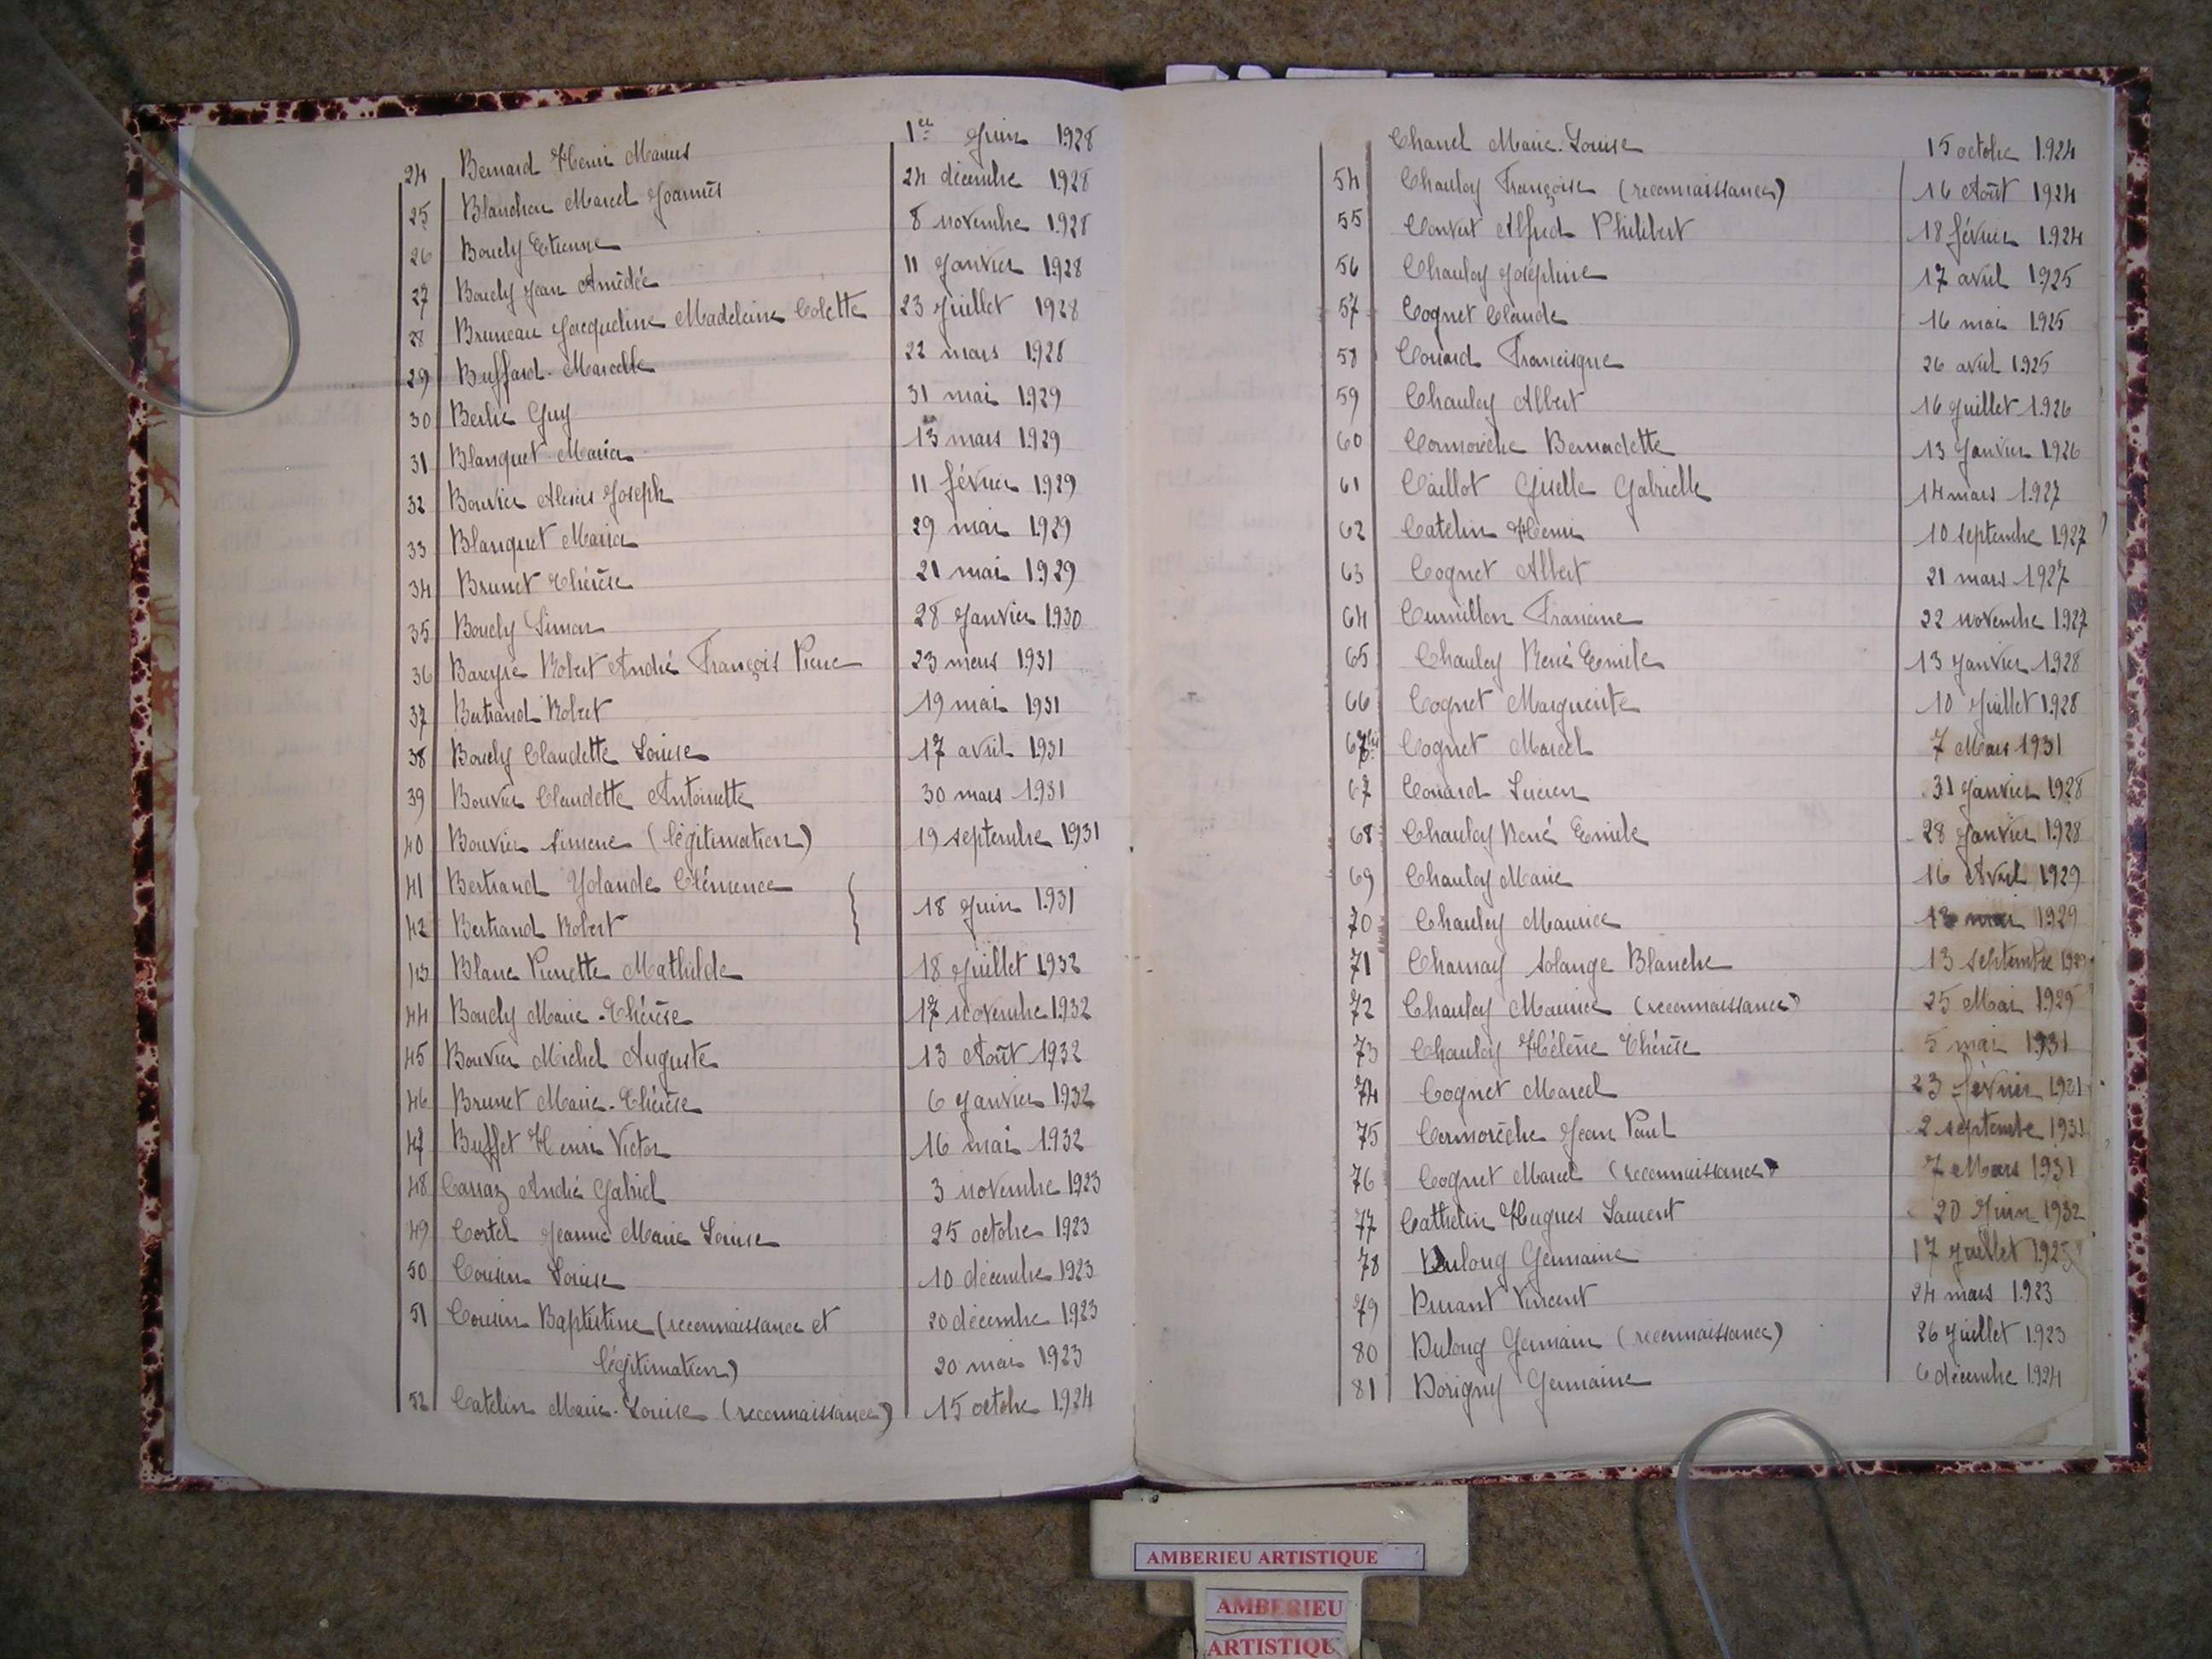 24 Bernard Henri Marius 1er Juin 1928
25 Blanchon Marcel Joannès 24 décembre 1928
26 Boudy Etienne 8 novembre 1928
27 Boudy Jean Amédée 11 Janvier 1928
28 Bruneau Jacqueline Madeleine Colette 23 Juillet 1928
29 Buffard Marcelle 22 mars 1928
30 Berlie Guy 31 mai 1929
31 Blanquet Maria 13 mars 1929
32 Bouvier Alexis Joseph 11 février 1929
33 Blanquet Maria 29 mai 1929
34 Brunet Thérèse 21 mai 1929
35 Boudy Simon 28 Janvier 1930
36 Robert André François Pierre 23 mars 1931
37 Bertrand Robert 19 mai 1931
38 Boudy Claudette Louise 17 avril 1931
39 Bouvier Claudette Antoinette 30 mars 1931
40 Bouvier Simone (légitimation) 19 septembre 1931
41 Bertrand Yolande Clémence
18 Juin 1931
42 Bertrand Robert
43 Blanc Pierrette Mathilde 18 Juillet 1932
44 Boudy Marie-Thérèse 17 novembre 1932
45 Bouvier Michel Auguste 13 Août 1932
46 Brunet Marie-Thérèse 6 Janvier 1932
47 Buffet Henri Victor 16 mai 1932
48 Carraz André Gabriel 3 novembre 1923
49 Cortel Jeanne Marie Louise 25 octobre 1923
50 Cousin Louise 10 décembre 1923
51 Cousin Baptistine (reconnaissance et 20 décembre 1923
légitimation) 20 mai 1923
52 Catelin Marie-Louise (reconnaissance) 15 octobre 1924
Chanel Marie-Louise 15 octobre 1924
54 Chauloy Françoise (reconnaissance) 16 Août 1924
55 Convert Alfred Philibert 18 février 1924
56 Chauloy Joséphine 17 avril 1925
57 Cognet Claude 16 mai 1925
58 Couard Francisque 26 avril 1925
59 Chauloy Albert 16 Juillet 1926
60 Cormorèche Bernadette 13 Janvier 1926
61 Caillot Giselle Gabrielle 14 mars 1927
62 Catelin Henri 10 septembre 1927
63 Cognet Albert 21 mars 1927
64 Cumillon Francine 22 novembre 1927
65 Chauloy René Emile 13 Janvier 1928
66 Cognet Marguerite 10 Juillet 1928
67bis Cognet Marcel 7 Mars 1931
67 Couard Lucien 31 Janvier 1928
68 Chauloy René Emile 28 Janvier 1928
69 Chauloy Marie 16 Avril 1929
70 Chauloy Maurice mai 1929
71 Charnay Solange Blanche 13 septembre
72 Chauloy Maurice (reconnaissance) 25 Mai 1929
73 Chauloy Hélène Thérèse 5 mai 1931
74 Cognet Marcel 23 février 1931
75 Cormorèche Jean Paul 2 septembre 1931
76 Cognet Marcel (reconnaissance) 7 Mars 1931
77 Cathelin Hugues Laurent 20 Juin 1932
78 Dulong Germaine 17 Juillet 1923
79 Durant Vincent 24 mars 1923
80 Dulong Germain (reconnaissance) 26 Juillet 1923
81 Dorigny Germaine 6 décembre 1924
AMBERIEU ARTISTIQUE
AMBERIEU
ARTISTIQUE